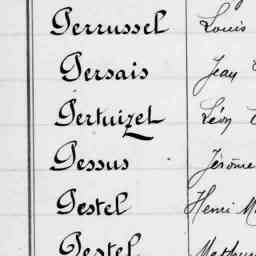 Perrussel Louis
Persais Jean
Pertuizet Léon
Pessus Jérôme
Pestel Henri
Pestel